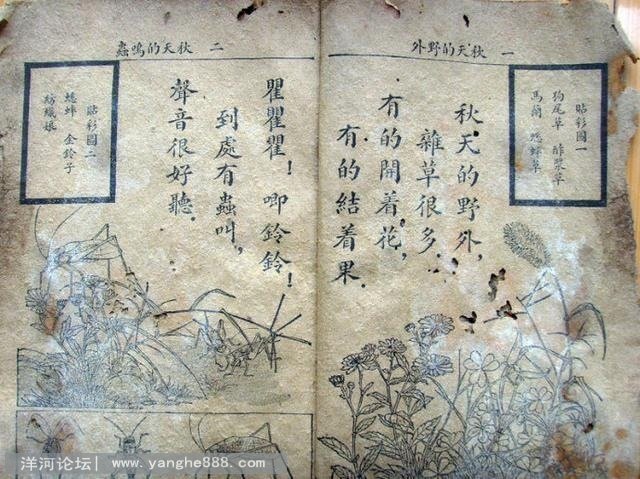 一 秋天的野外
貼彩圖一
狗尾草 酢漿草
馬蘭 蟋蟀草
秋天的野外，
雜草很多．
有的開着花，
有的結着果．
二 秋天的鳴蟲
瞿瞿瞿！唧鈴鈴！
到處有蟲叫，
聲音很好聽．
貼彩圖二
蟋蟀 金鈴子
紡織娘
洋河论坛| www.yanghe888.com